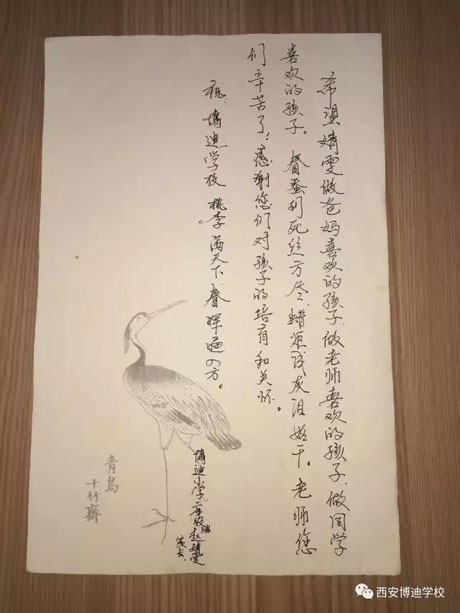 希望婧雯做爸妈喜欢的孩子，做老师喜欢的孩子，做同学
喜欢的孩子。春蚕到死丝方尽，蜡炬成灰泪始干。老师您
们辛苦了，感谢您们对孩子的培育和关怀。
祝：博迪学校 桃李满天下，春晖遍四方。
博迪小学二年级 赵婧雯
家长
青鸟
十竹斋
西安博迪学校